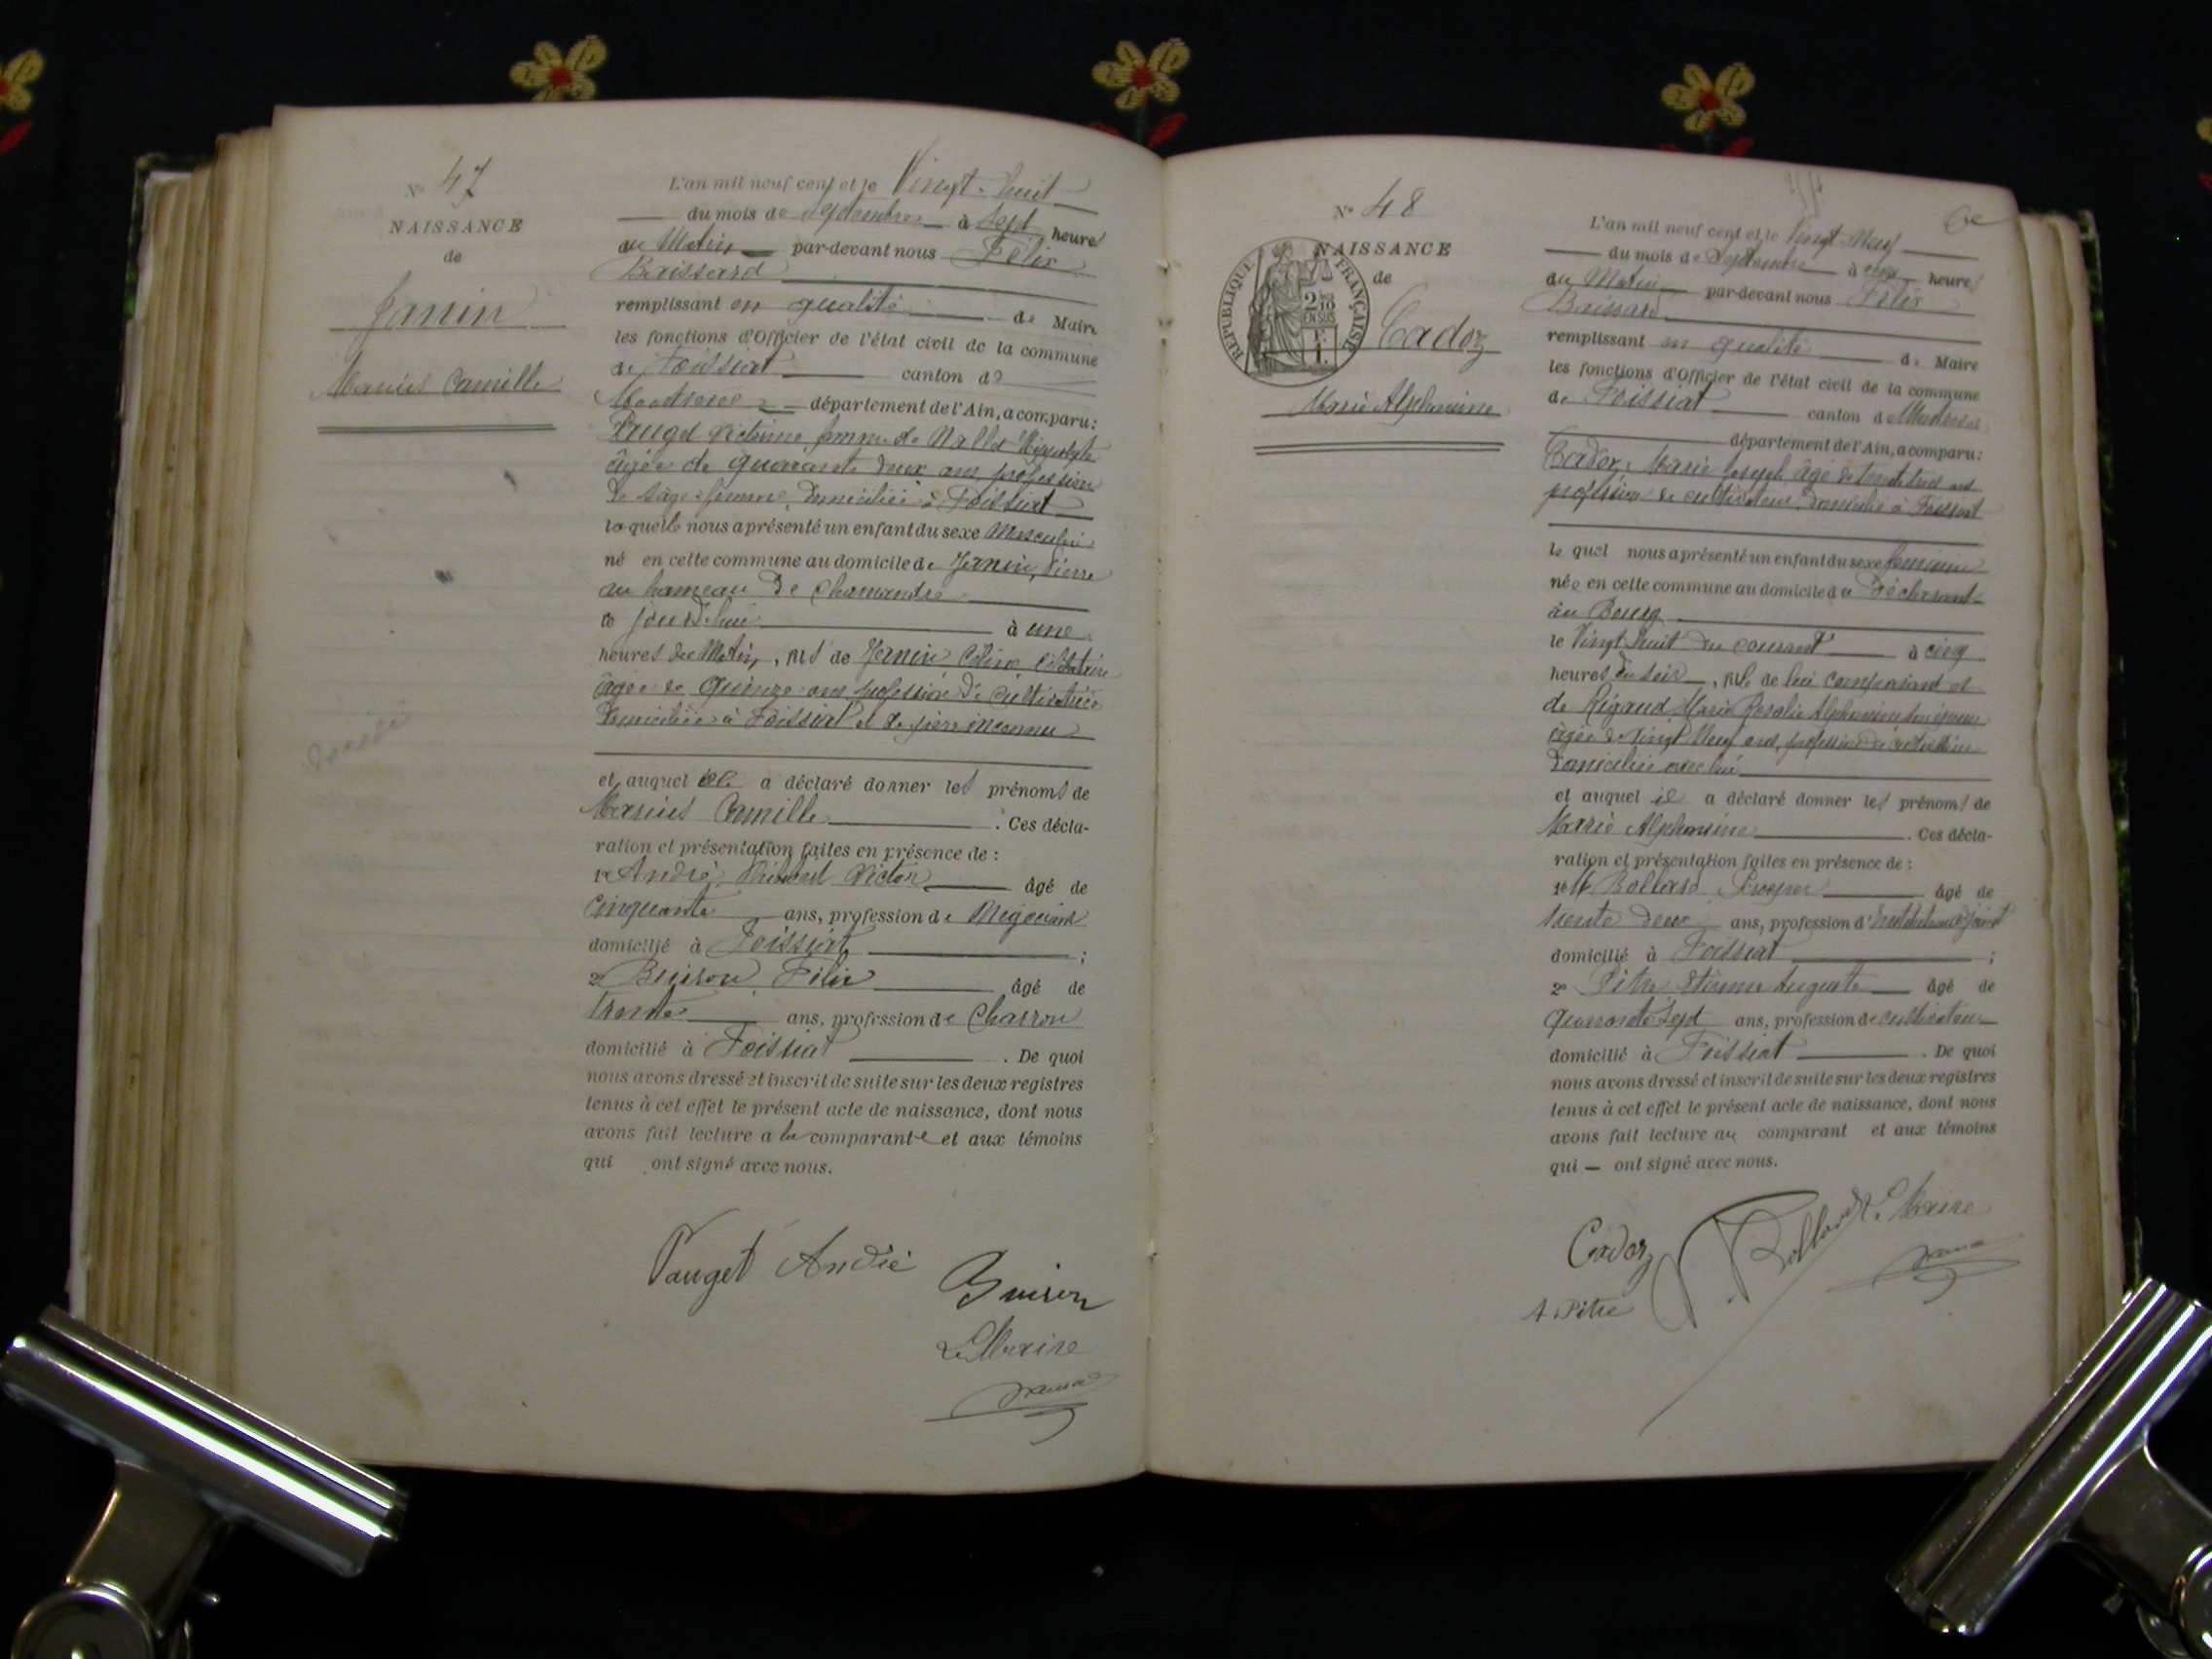 N° 47
NAISSANCE
de
Janin
Marius Camille
L'an mil neuf cent et le Vingt-huit
du mois de Septembre à Sept heures
du Matin par-devant nous Félix
Baissard
remplissant en qualité de Maire
les fonctions d'Officier de l'état civil de la commune
de Foissiat canton de
Montrevel département de l'Ain, a comparu:
Pauget Victorine femme de Nallet Hippolyte
âgée de quarante deux ans, profession
de sage-femme, domiciliée à Foissiat
laquelle nous a présenté un enfant du sexe Masculin
né en cette commune au domicile de Janin, Pierre
au hameau de
ce jourd'hui à une
heures du Matin, fils de Janin Célina Célibataire
âgée de Quinze ans, profession de Cultivatrice
domiciliée à Foissiat et de père inconnu
et auquel elle a déclaré donner les prénoms de
Marius Camille. Ces décla-
ration et présentation faites en présence de :
1° André, Victor âgé de
Cinquante ans, profession de Négociant
domicilié à Foissiat ;
2° Buison, Félix âgé de
trente ans, profession de Charron
domicilié à Foissiat. De quoi
nous avons dressé et inscrit de suite sur les deux registres
tenus à cet effet le présent acte de naissance, dont nous
avons fait lecture a la comparante et aux témoins
qui ont signé avec nous.
Pauget André
Buison
Le Maire
N° 48
NAISSANCE
de
RÉPUBLIQUE FRANÇAISE
2/10 EN SUS
F. 1.
Cadoz
Marie Alphonsine
60
L'an mil neuf cent et le Vingt-Neuf
du mois de Septembre à onze heures
du Matin par-devant nous Félix
Baissard
remplissant en qualité de Maire
les fonctions d'Officier de l'état civil de la commune
de Foissiat canton de Montrevel
département de l'Ain, a comparu:
Cadoz, Marie Joseph âgé de trente trois ans
profession de cultivateur domicilié à Foissiat
lequel nous a présenté un enfant du sexe féminin
née en cette commune au domicile du déclarant
au Bourg
le Vingt huit du courant à cinq
heures du soir, fille de lui comparant et
de Rigaud, Marie Rosalie Alphonsine son épouse
âgée de Vingt Neuf ans, profession de cultivatrice
domiciliée avec lui
et auquel il a déclaré donner les prénoms de
Marie Alphonsine. Ces décla-
ration et présentation faites en présence de :
1° M. Bollard âgé de
trente deux ans, profession d'Instituteur adjoint
domicilié à Foissiat ;
2° Pitre Etienne Auguste âgé de
quarante sept ans, profession de cultivateur
domicilié à Foissiat. De quoi
nous avons dressé et inscrit de suite sur les deux registres
tenus à cet effet le présent acte de naissance, dont nous
avons fait lecture au comparant et aux témoins
qui — ont signé avec nous.
Cadoz Bollard Le Maire
A. Pitre